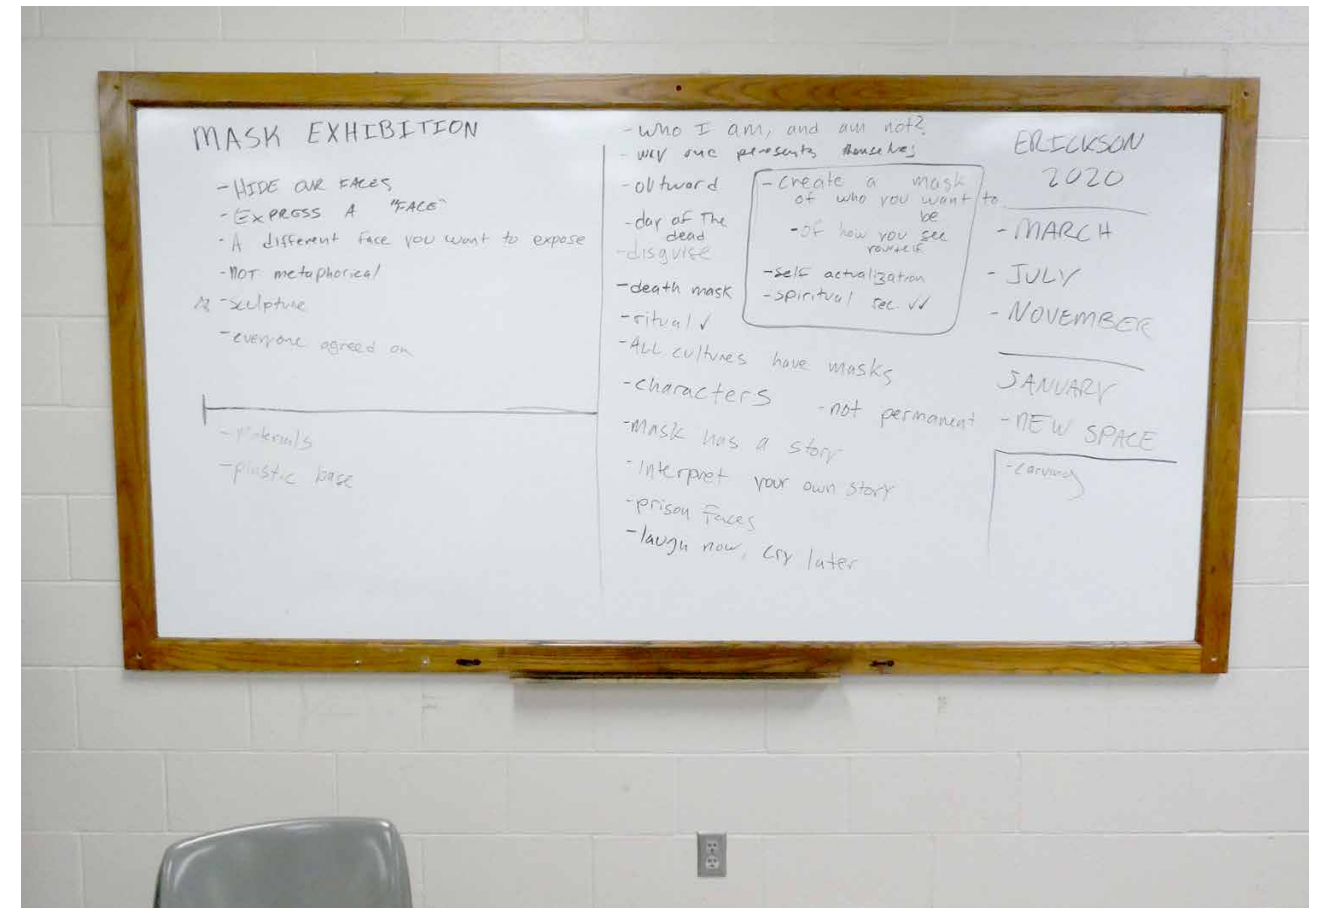 MASK EXHIBITION
- HIDE OUR FACES
- EXPRESS A "FACE"
- A different face you want to expose
- NOT metaphorical
- sculpture
- everyone agreed on
- materials
- plastic base
- who I am, and am not?
- way one presents themselves
- outward
- day of The
dead
- disguise
- death mask
- ritual ✓
- ALL cultures have masks
- characters
- not permanent
- mask has a story
- Interpret your own story
- prison faces
- laugh now, cry later
- create a mask
of who you want to
be
- of how you see
yourself
- self actualization
- spiritual sec. ✓✓
ERICKSON
2020
- MARCH
- JULY
- NOVEMBER
JANUARY
- NEW SPACE
- carving